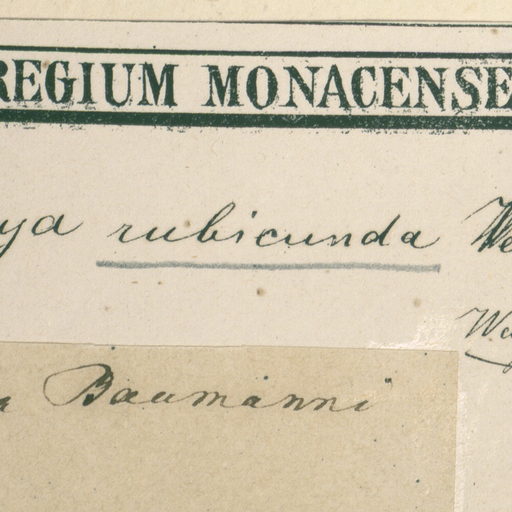 REGIUM MONACENSE
rubicunda
Baumanni